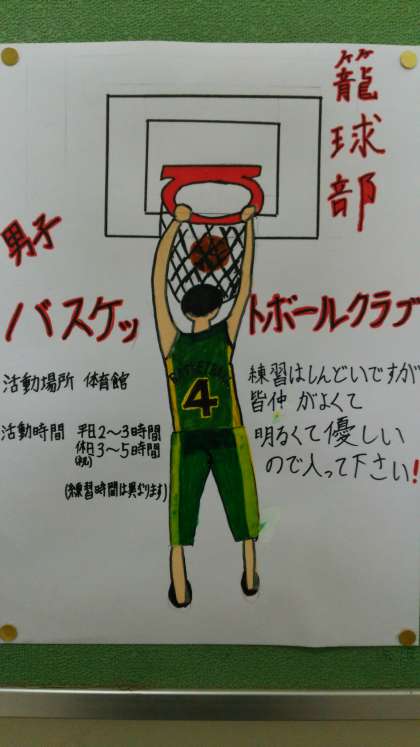 籠球部
男子
バスケットボールクラブ
活動場所 体育館
活動時間 平日2～3時間
休日3～5時間
(祝)
(練習時間は異なります)
BASKETBALL
4
練習はしんどいですが
皆仲がよくて
明るくて優しい
ので入って下さい!